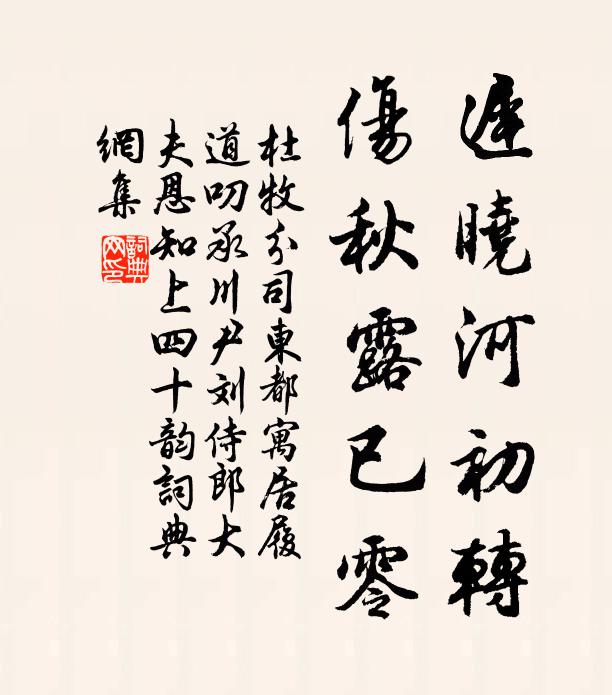 遲曉河初轉
傷秋露已零
杜牧分司東都寓居履
道叨承川尹刘侍郎大
夫恩知上四十韵詞典
網集
詞典
网印